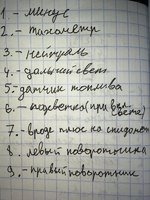 1. - минус
2. - тахометр
3. - нейтраль
4. - дальний свет
5 - датчик топлива
6. - подсветка (при вкл. свете)
7. - вроде плюс на спидометр
8. левый поворотника
9. - правый поворотник